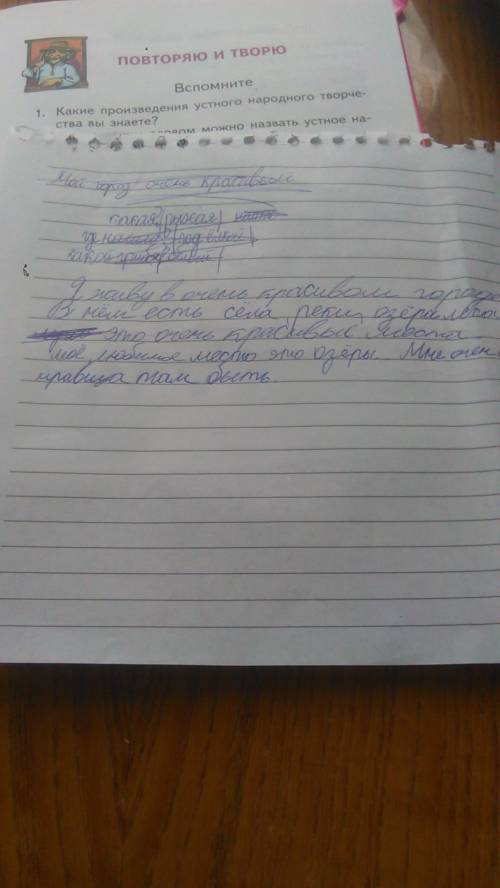 ПОВТОРЯЮ И ТВОРЮ
Вспомните
1. Какие произведения устного народного творче-
ства вы знаете?
можно назвать устное на-
Мой город очень красивый
какая? рыжая
где под ёлкой
какой
Я живу в очень красивом
В нём есть сёла, реки, озёра,
это очень красивые
моё любимое место это озёры. Мне очен
нравица там быть.